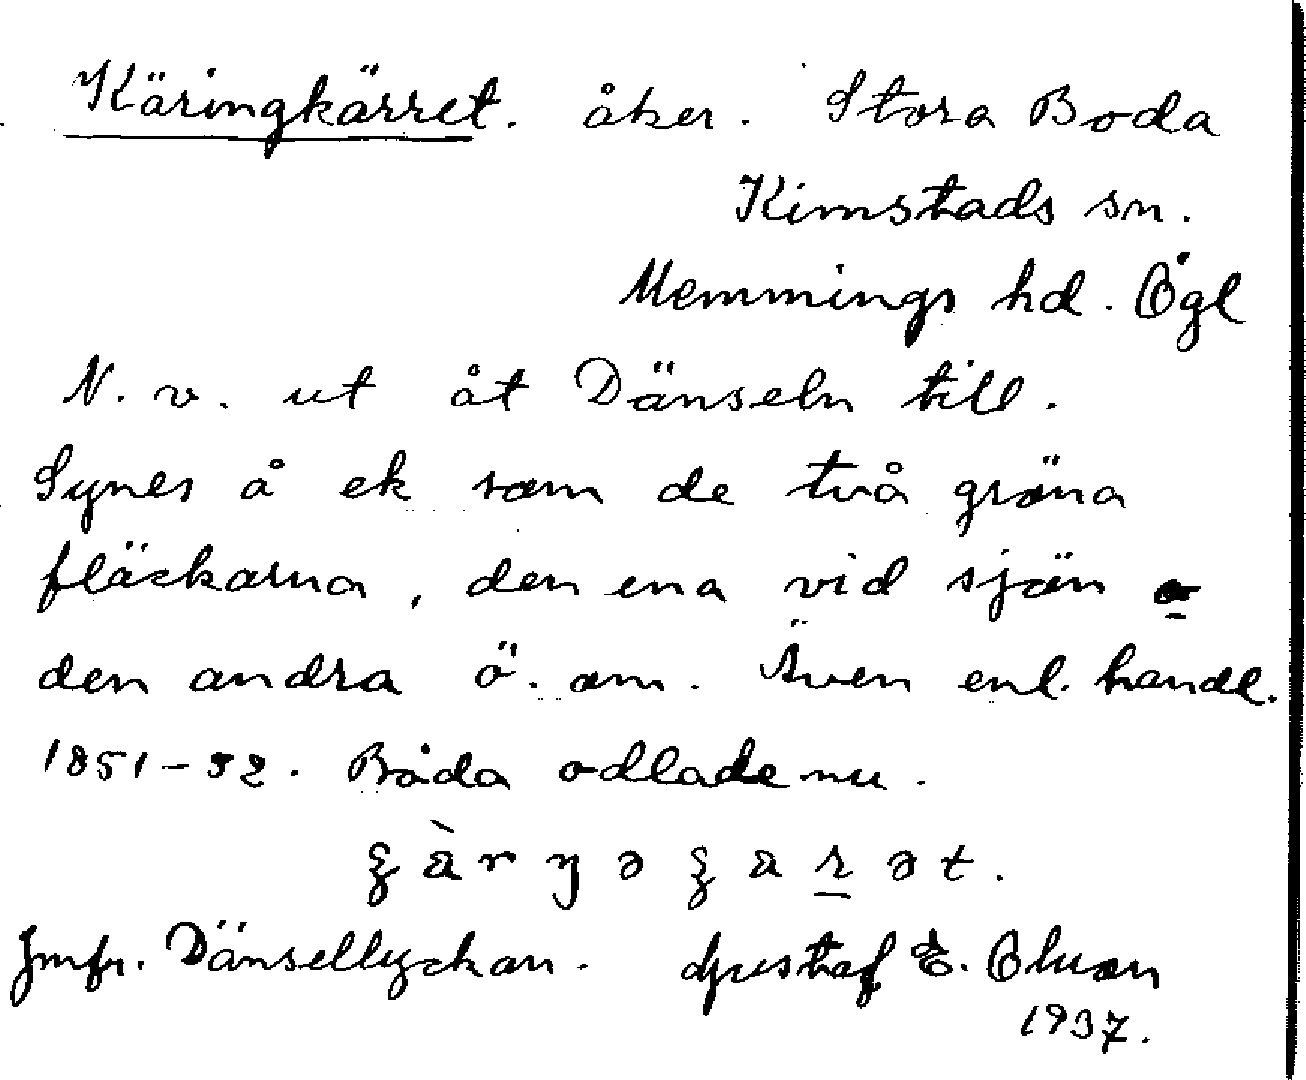 Käringkärret. åker. Stora Boda
Kimstads sn.
Memmings hd. Ögl
N. v. ut åt Dänseln till.
Synes å ek som de två gröna
fläckarna, den ena vid sjön o
den andra ö. om. Även enl. handl.
1851-52. Båda odlade nu.
Jmfr. Dänsellyckan. Gustaf E. Olsson
1937.